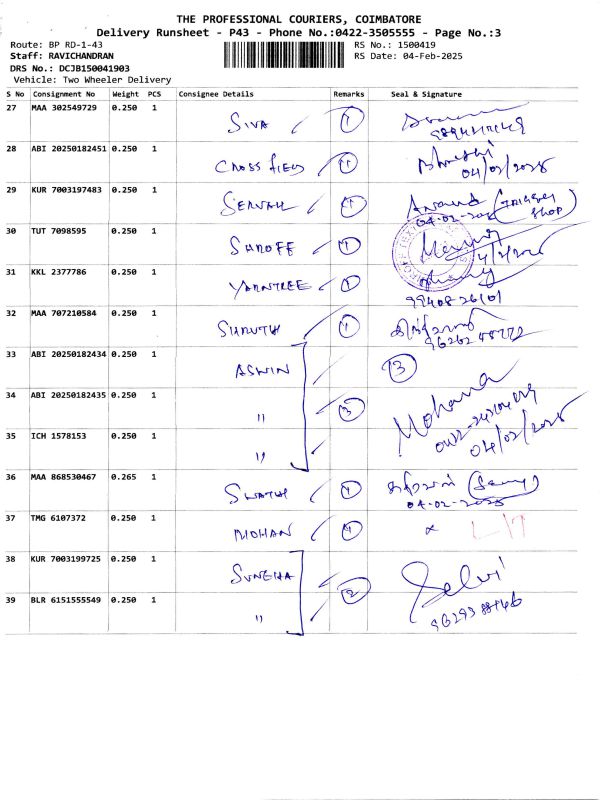 THE PROFESSIONAL COURIERS, COIMBATORE
Delivery Runsheet - P43 - Phone No.:0422-3505555 - Page No.:3
Route: BP RD-1-43
RS No.: 1500419
Staff: RAVICHANDRAN
RS Date: 04-Feb-2025
DRS No.: DCJB150041903
Vehicle: Two Wheeler Delivery
S No Consignment No Weight PCS Consignee Details Remarks Seal & Signature
27 MAA 302549729 0.250 1 SIVA 1
28 ABI 20250182451 0.250 1 CROSS FIELD 1
04/02/2025
29 KUR 7003197483 0.250 1 1 Anand
04-02-2025 SHOP
30 TUT 7098595 0.250 1 SHROFF 1
31 KKL 2377786 0.250 1 YARNTREE 1
99408-26101
32 MAA 707210584 0.250 1 1
33 ABI 20250182434 0.250 1 ASWIN 3
34 ABI 20250182435 0.250 1 " 3 Mohana
35 ICH 1578153 0.250 1 "
04/02/2025
36 MAA 868530467 0.265 1 1
04-02-2025
37 TMG 6107372 0.250 1 MOHAN 1
38 KUR 7003199725 0.250 1 SUNEHA 2 Selvi
39 BLR 6151555549 0.250 1 "